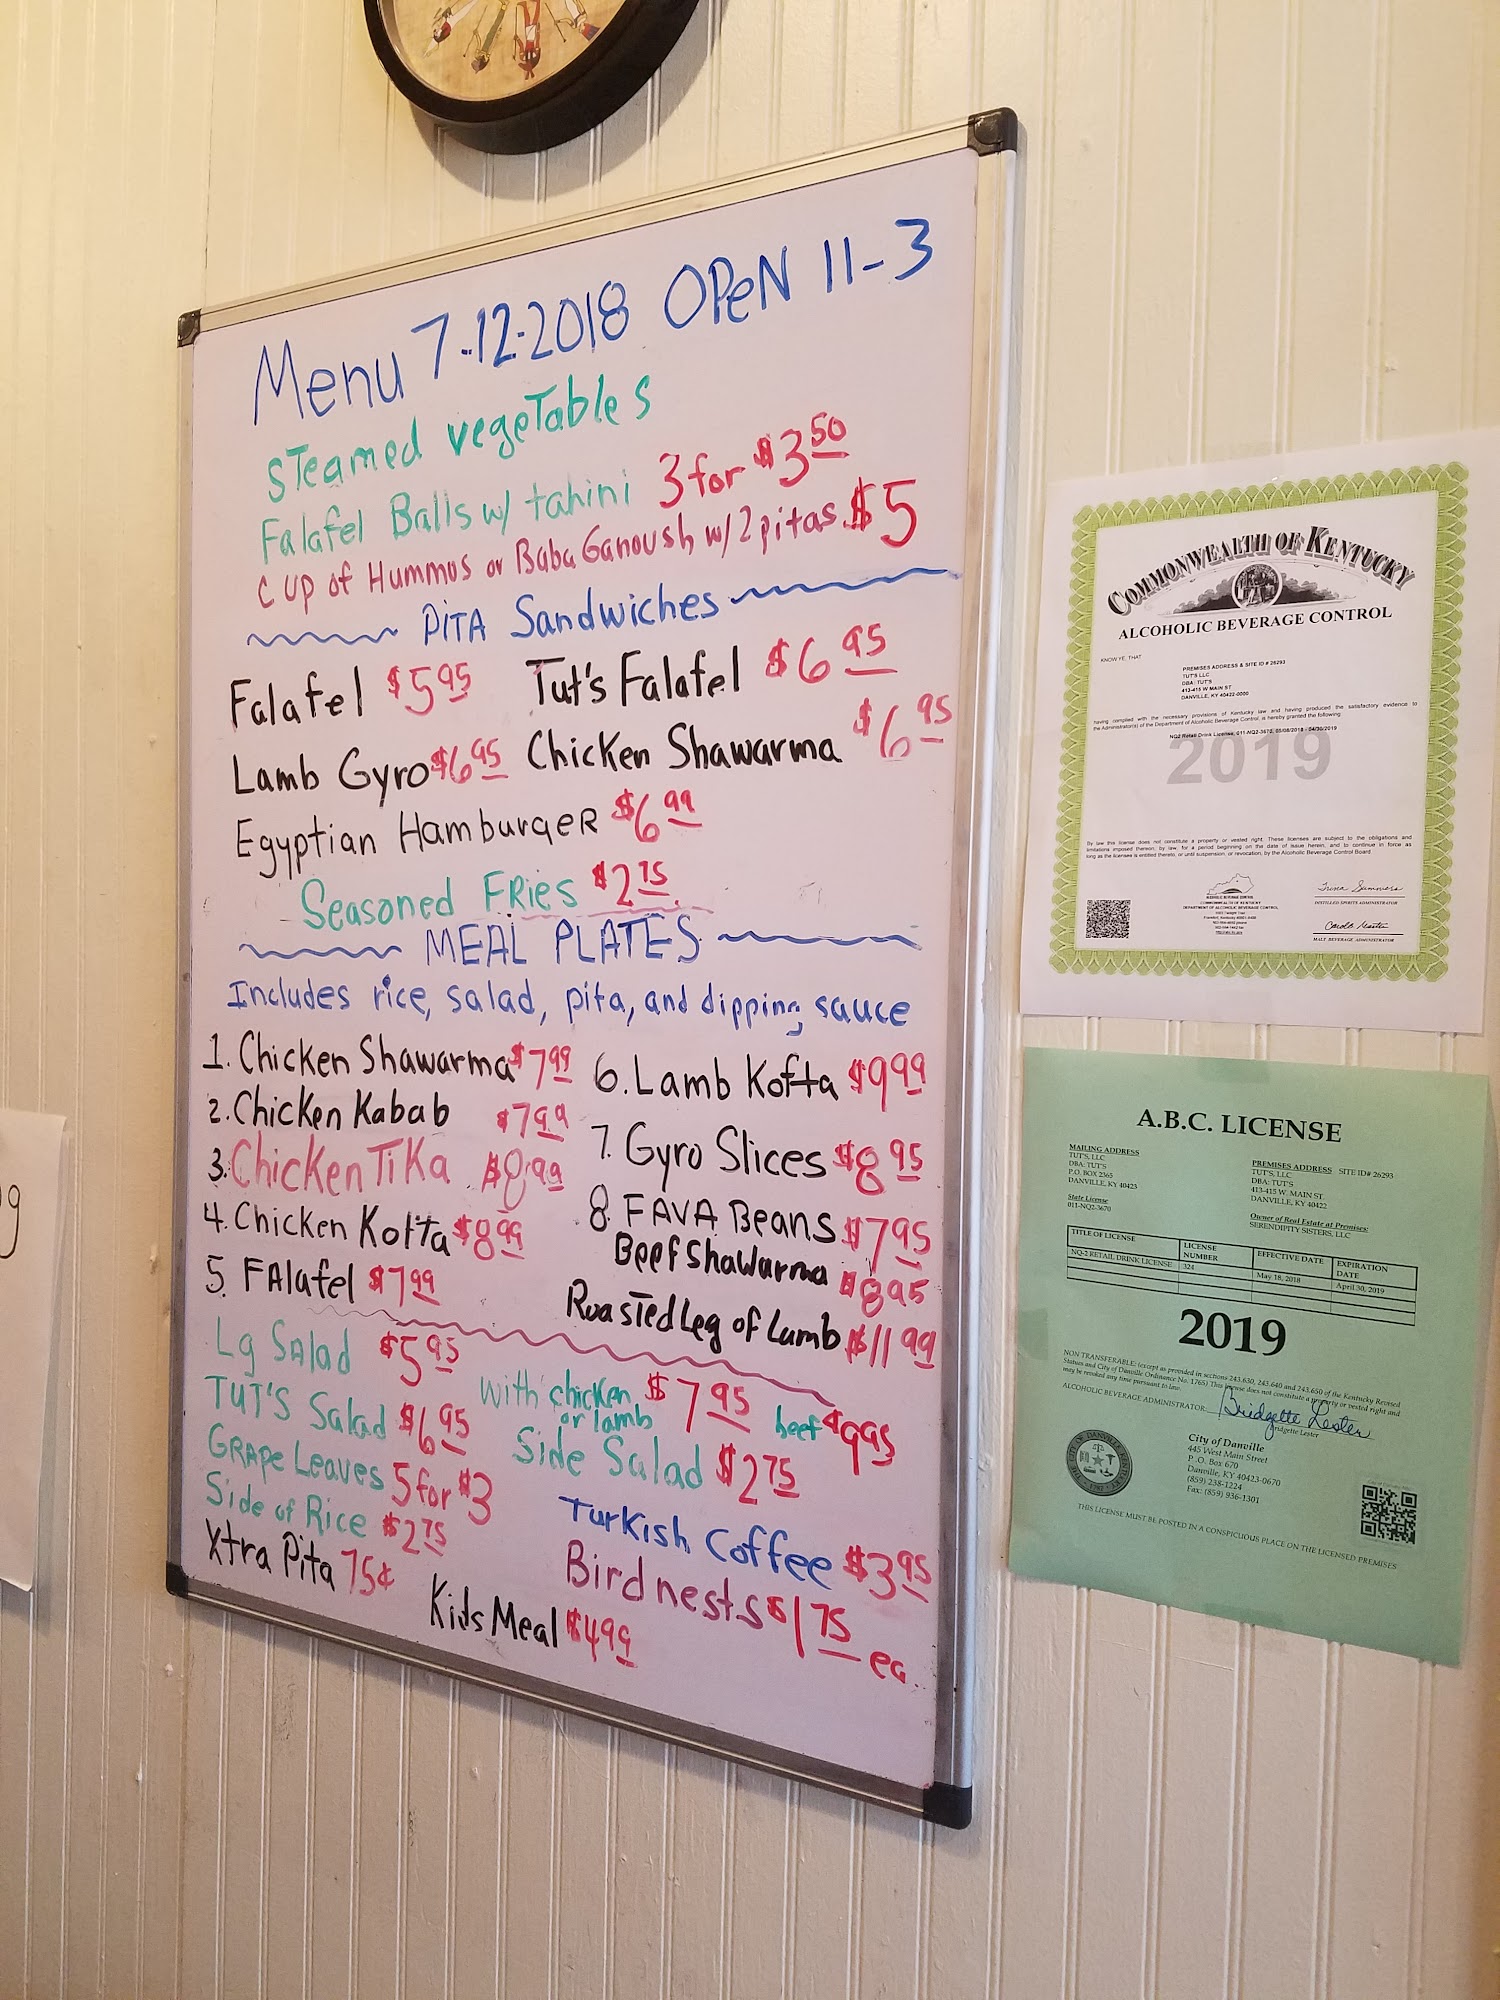 Menu 7-12-2018 OPeN 11-3
sTeamed vegeTables
Falafel Balls w/ tahini 3 for $3.50
Cup of Hummus or Baba Ganoush w/ 2 pitas $5
PiTA Sandwiches
Falafel $5.95 Tut's Falafel $6.95
Lamb Gyro $6.95 Chicken Shawarma $6.95
Egyptian HamburgeR $6.99
Seasoned FRies $2.75
MEAL PLATES
Includes rice, salad, pita, and dipping sauce
1. Chicken Shawarma $7.99
2. Chicken Kabab $7.99
3. Chicken TiKa $8.99
4. Chicken Kofta $8.99
5. FAlafel $7.99
6. Lamb Kofta $9.99
7. Gyro Slices $8.95
8. FAVA Beans $7.95
Beef Shawarma $8.95
Roasted Leg of Lamb $11.99
Lg SAlad $5.95
with chicken or lamb $7.95 beef $9.95
TUT'S Salad $6.95
Side Salad $2.75
GRApe Leaves 5 for $3
Side of Rice $2.75
Xtra Pita 75¢
Turkish Coffee $3.95
Bird nests $1.75 ea.
Kids Meal $4.99
COMMONWEALTH OF KENTUCKY
ALCOHOLIC BEVERAGE CONTROL
KNOW YE, THAT
PREMISES ADDRESS & SITE ID # 26293
TUT'S LLC
DBA: TUT'S
413-415 W MAIN ST
DANVILLE, KY 40422-0000
having complied with the necessary provisions of Kentucky law and having produced the satisfactory evidence to
the Administrator(s) of the Department of Alcoholic Beverage Control, is hereby granted the following:
NQ2 Retail Drink License, 011-NQ2-3670, 05/08/2018 - 04/30/2019
2019
By law this license does not constitute a property or vested right. These licenses are subject to the obligations and
limitations imposed thereon, by law, for a period beginning on the date of issue herein, and to continue in force as
long as the licensee is entitled thereto, or until suspension, or revocation, by the Alcoholic Beverage Control Board.
DISTILLED SPIRITS ADMINISTRATOR
MALT BEVERAGE ADMINISTRATOR
A.B.C. LICENSE
MAILING ADDRESS
TUT'S, LLC
DBA: TUT'S
P.O. BOX 2365
DANVILLE, KY 40423
State License
011-NQ2-3670
PREMISES ADDRESS SITE ID# 26293
TUT'S, LLC
DBA: TUT'S
413-415 W. MAIN ST.
DANVILLE, KY 40422
Owner of Real Estate at Premises:
SERENDIPITY SISTERS, LLC
TITLE OF LICENSE LICENSE NUMBER EFFECTIVE DATE EXPIRATION DATE
NQ-2 RETAIL DRINK LICENSE 324 May 18, 2018 April 30, 2019
2019
NON TRANSFERABLE: (except as provided in sections 243.630, 243.640 and 243.650 of the Kentucky Revised
Statues and City of Danville Ordinance No. 1765) This license does not constitute a property or vested right and
may be revoked any time pursuant to law.
ALCOHOLIC BEVERAGE ADMINISTRATOR: Bridgette Lester
Bridgette Lester
City of Danville
445 West Main Street
P.O. Box 670
Danville, KY 40423-0670
(859) 238-1224
Fax: (859) 936-1301
THIS LICENSE MUST BE POSTED IN A CONSPICUOUS PLACE ON THE LICENSED PREMISES